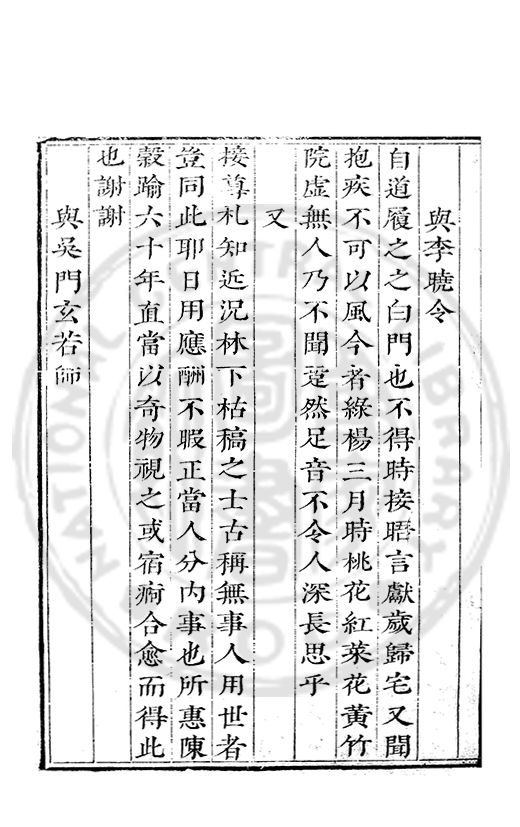 與李曉令
自道履之之白門也不得時接晤言獻歲歸宅又聞
抱疾不可以風今者綠楊三月時桃花紅菜花黃竹
院虛無人乃不聞跫然足音不令人深長思乎
又
接尊札知近況林下枯稿之士古稱無事人用世者
豈同此耶日用應酬不暇正當人分内事也所惠陳
穀踰六十年直當以奇物視之或宿痾合愈而得此
也謝謝
與吳門玄若師